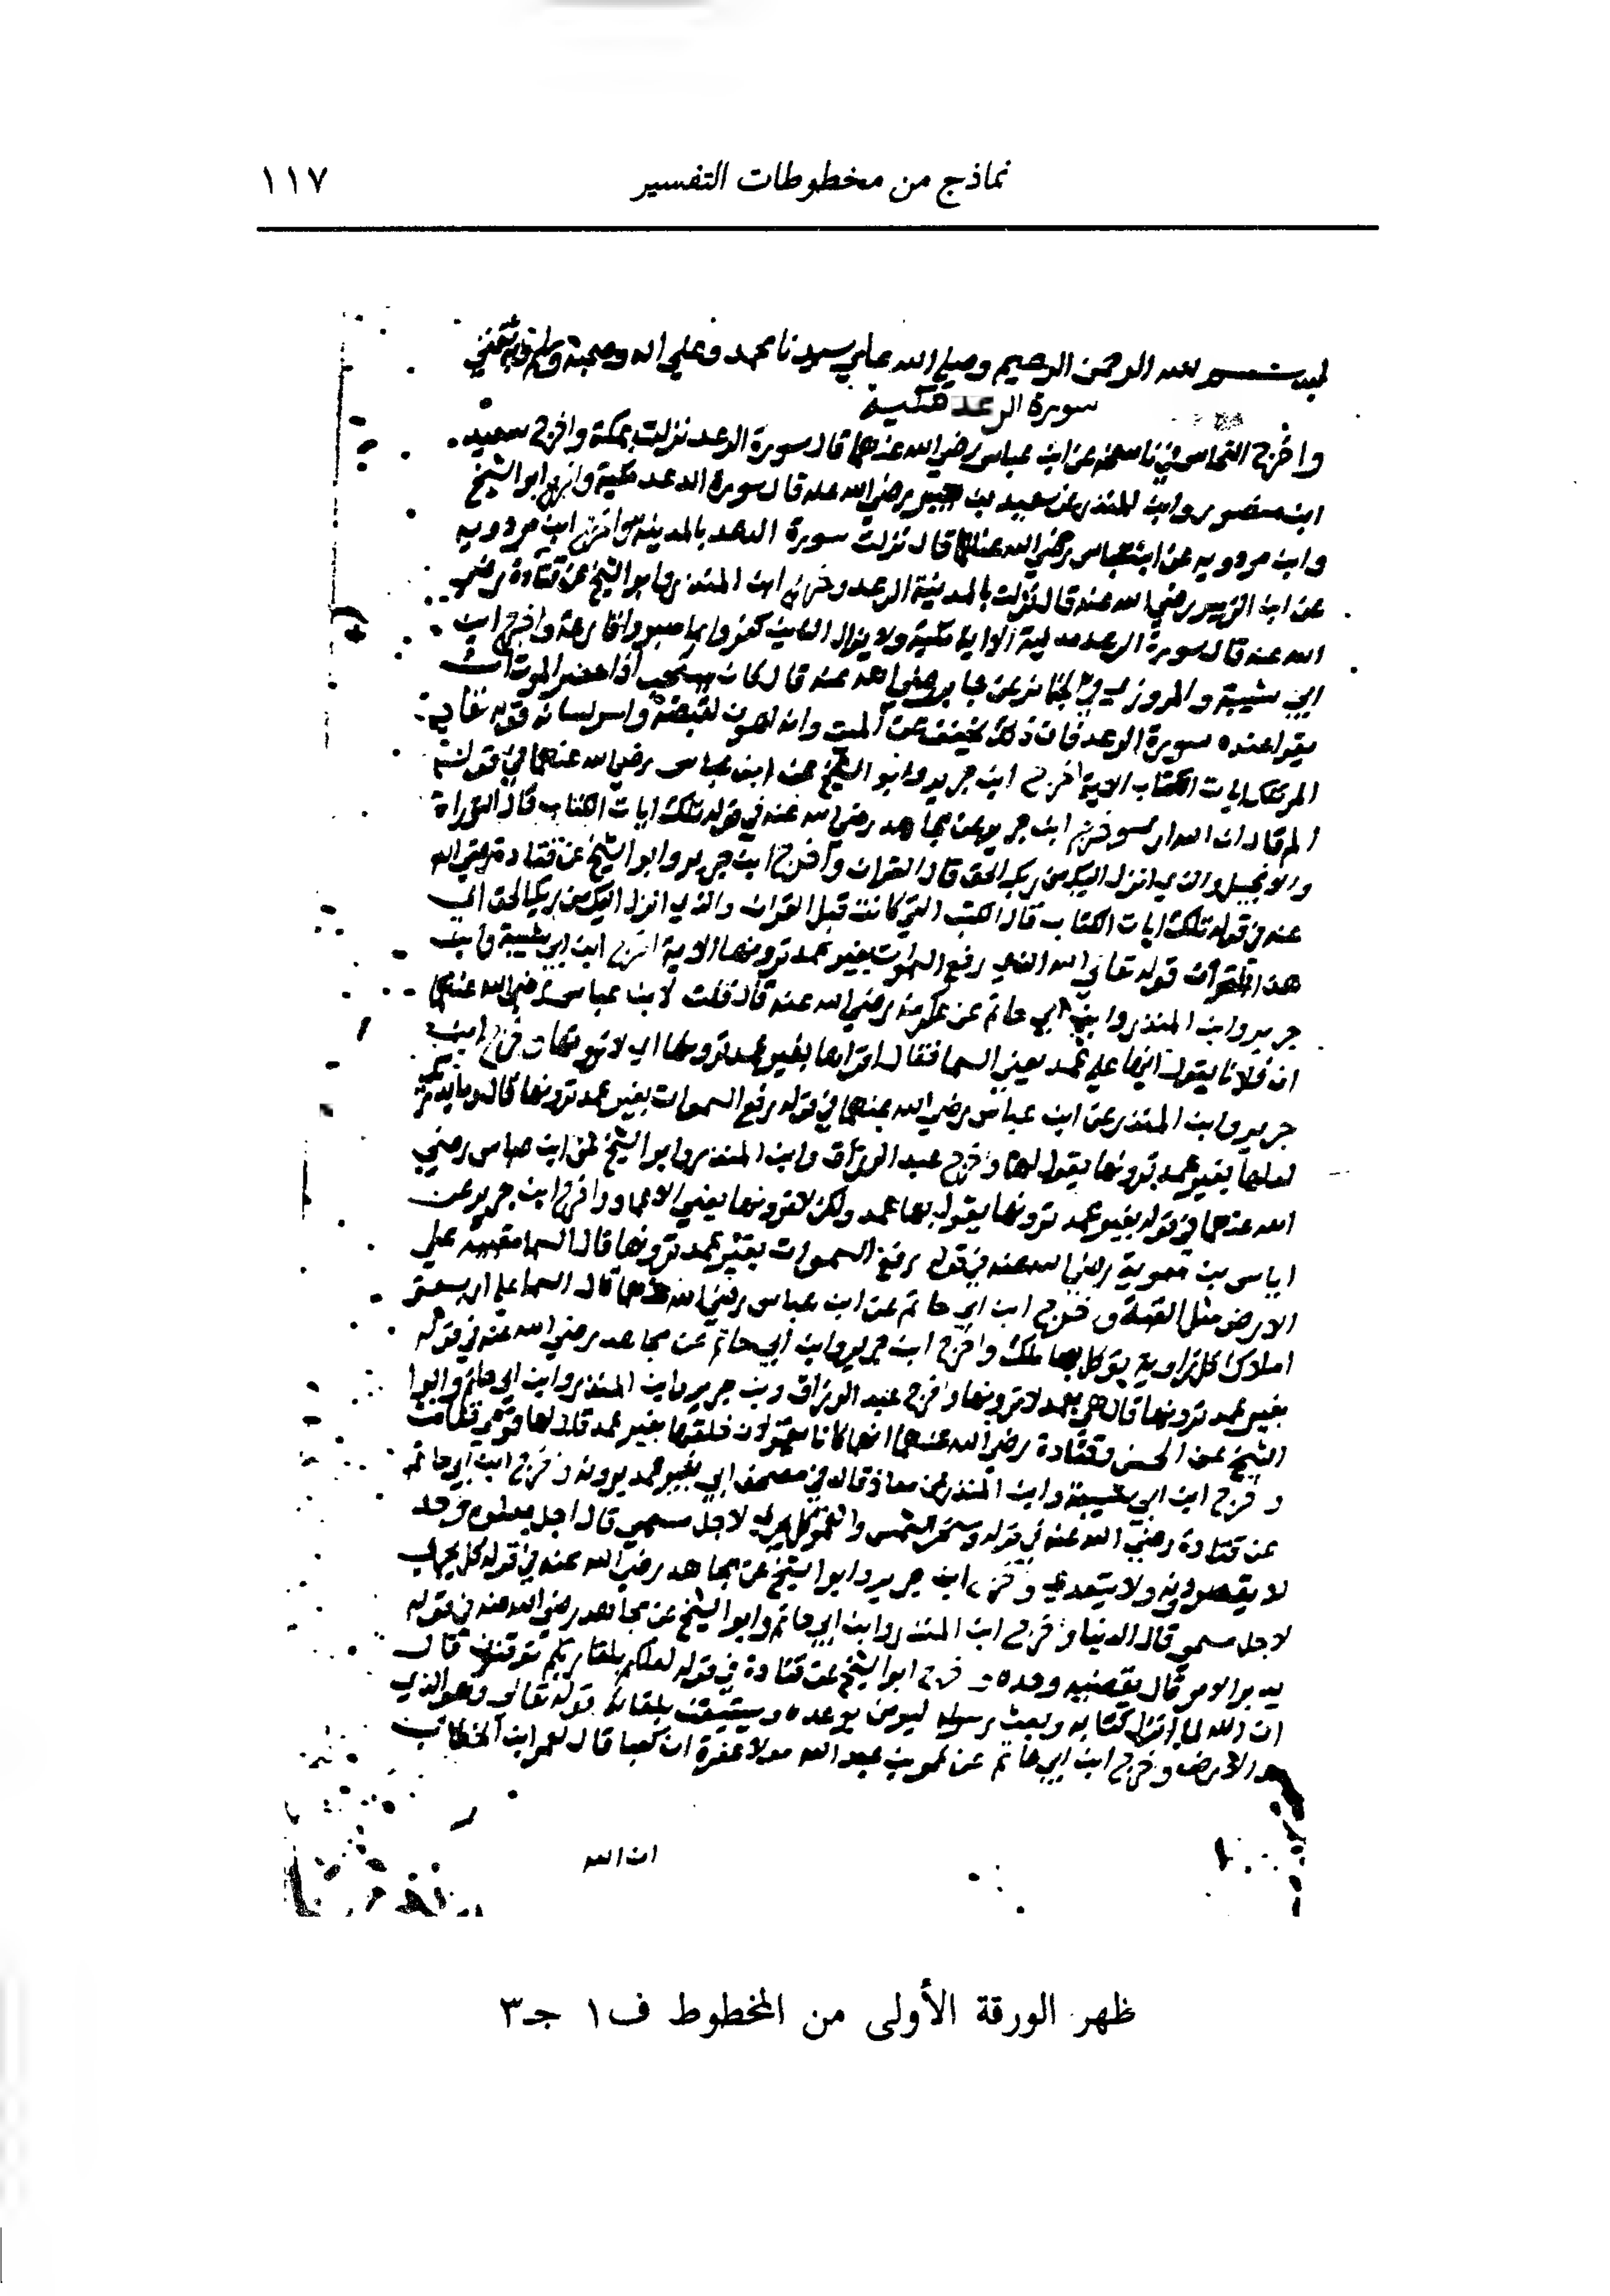 نماذج من مخطوطات التفسير
١١٧
بسم الله الرحمن الرحيم وصلى الله علي سيدنا محمد وعلي اله وصحبه وسلم
سورة الرعد مكية
واخرج النحاس في ناسخه عن ابن عباس رضي الله عنهما قال سورة الرعد نزلت بمكة واخرج سعيد
ابن منصور وابن المنذر عن سعيد بن جبير رضي الله عنه قال سورة الرعد مكية واخرج ابو الشيخ
وابن مردويه عن ابن عباس رضي الله عنهما قال نزلت سورة الرعد بالمدينة واخرج ابن مردويه
عن ابن الزبير رضي الله عنه قال نزلت بالمدينة الرعد وخرج ابن المنذر وابو الشيخ عن قتادة رضي
الله عنه قال سورة الرعد مدنية الا اية مكية ولا يزال الذين كفروا بما صنعوا قارعة واخرج ابن
ابي شيبة والمروزي في الجنائز عن جابر رضي الله عنه قال كان يستحب اذا حضر الموت ان
يقرا عنده سورة الرعد فان ذلك يخفف عن الميت وانه اهون لقبضه وايسر لشانه قوله تعالى
المر تلك ايات الكتاب الاية اخرج ابن جرير وابو الشيخ عن ابن عباس رضي الله عنهما في قوله
المر قال ان الله اري وخرج ابن جرير عن مجاهد رضي الله عنه في قوله تلك ايات الكتاب قال التوراة
والانجيل والذي انزل اليك من ربك الحق قال القران واخرج ابن جرير وابو الشيخ عن قتادة رضي الله
عنه في قوله تلك ايات الكتاب قال الكتب التي كانت قبل القران والذي انزل اليك من ربك الحق اي
هذا القران قوله تعالى الله الذي رفع السموات بغير عمد ترونها الاية اخرج ابن ابي شيبة وابن
جرير وابن المنذر وابن ابي حاتم عن عكرمة رضي الله عنه قال قلت لابن عباس رضي الله عنهما
ان فلانا يقول انها علي عمد يعني السما فقال اقراها بغير عمد ترونها اي لا ترونها وخرج ابن
جرير وابن المنذر عن ابن عباس رضي الله عنهما في قوله رفع السموات بغير عمد ترونها قال وما يدريك
لعلها بغير عمد ترونها يقول لها وخرج عبد الرزاق وابن المنذر وابو الشيخ عن ابن عباس رضي
الله عنهما في قوله بغير عمد ترونها يقول بها عمد ولكن لا ترونها يعني الاعماد واخرج ابن جرير عن
اياس بن معوية رضي الله عنه في قوله رفع السموات بغير عمد ترونها قال السما مقببة علي
الارض مثل القبة وخرج ابن ابي حاتم عن ابن عباس رضي الله عنهما قال السما علي اربعة
املاك كل زاوية يوكل بها ملك واخرج ابن جرير وابن ابي حاتم عن مجاهد رضي الله عنه في قوله
بغير عمد ترونها قال هي بعمد لا ترونها واخرج عبد الرزاق وبن جرير وابن المنذر وابن ابي حاتم وابوا
الشيخ عن الحسن وقتادة رضي الله عنهما انهما كانا يقولان خلقها بغير عمد قال لها قومي فقامت
وخرج ابن ابي شيبة وابن المنذر عن معاذ قال في مصحف ابي بغير عمد يرونه وخرج ابن ابي حاتم
عن قتادة رضي الله عنه في قوله وسخر الشمس والقمر كل يجري لاجل مسمي قال اجل معلوم وحد
لا يقصر دونه ولا يتعدي وخرج ابن جرير وابو الشيخ عن مجاهد رضي الله عنه في قوله كل يجري
لاجل مسمي قال الدنيا وخرج ابن المنذر وابن ابي حاتم وابو الشيخ عن مجاهد رضي الله عنه في قوله
يدبر الامر قال يقضيه وحده وخرج ابو الشيخ عن قتادة في قوله لعلكم بلقا ربكم توقنون قال
ان الله لما انزل كتابه وبعث رسوله ليومن بوعده ويستيقن بلقائه قوله تعالى وهو الذي
مد الارض وخرج ابن ابي حاتم عن عمر بن عبد الله مولا غفرة ان كعبا قال لعمر ابن الخطاب
ان الله
ظهر الورقة الأولى من المخطوط ف١ جـ٣